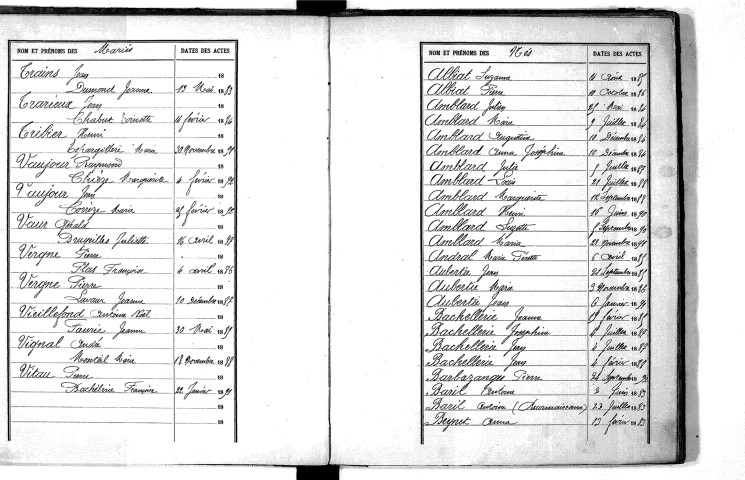 NOM ET PRÉNOMS DES Mariés DATES DES ACTES
Trains Jean 18
Dumond Jeanne 13 Mai 1883
Trarieux Jean 18
Chabut Toinette 11 février 1884
Tribier Henri 18
Espargilière Marie 30 Novembre 1891
Vaujour Raymond
Chièze Marguerite 4 février 1892
Vaujour Jean
Corrèze Marie 25 février 1892
Vaur Gérald
Bruyeilles Juliette 26 avril 1888
Vergne Pierre
Plas Françoise 6 avril 1886
Vergne Pierre
Lavaur Jeanne 10 Décembre 1887
Vieillefond Antoine Noël
Faurie Jeanne 30 Mai 1885
Vignal André 18
Montal Marie 18 Novembre 1888
Vitau Pierre 18
Bachellerie Françoise 22 Janvier 1891
18
18
NOM ET PRÉNOMS DES Nés DATES DES ACTES
Albiat Suzanne 11 Août 1885
Albiat Pierre 10 Octobre 1886
Amblard Julien 25 Mai 1884
Amblard Marie 9 Juillet 1884
Amblard Augustine 10 Décembre 1884
Amblard Anna Joséphine 10 Décembre 1884
Amblard Julie Juillet
Amblard Louis 21 Juillet 1888
Amblard Marguerite 12 Septembre 1888
Amblard Henri 16 Juin 1890
Amblard Suzette Septembre 1890
Amblard Maria 28 Novembre 1891
Andral Marie Pierrette 6 avril 1885
Aubertie Jean 21 Septembre 1885
Aubertie Marie 3 Novembre 1886
Aubertie Jean 6 Janvier 1891
Bachellerie Jeanne 17 février 1885
Bachellerie Joséphine 6 Juillet 1888
Bachellerie Jean 4 Juillet 1888
Bachellerie Jean 4 février 1889
Barbazanges Pierre 24 Septembre 1890
Baril Antoine 2 Juin 1883
Baril Antoine (Reconnaissance) 23 Juillet 1883
Beynet Anna 13 février 1883